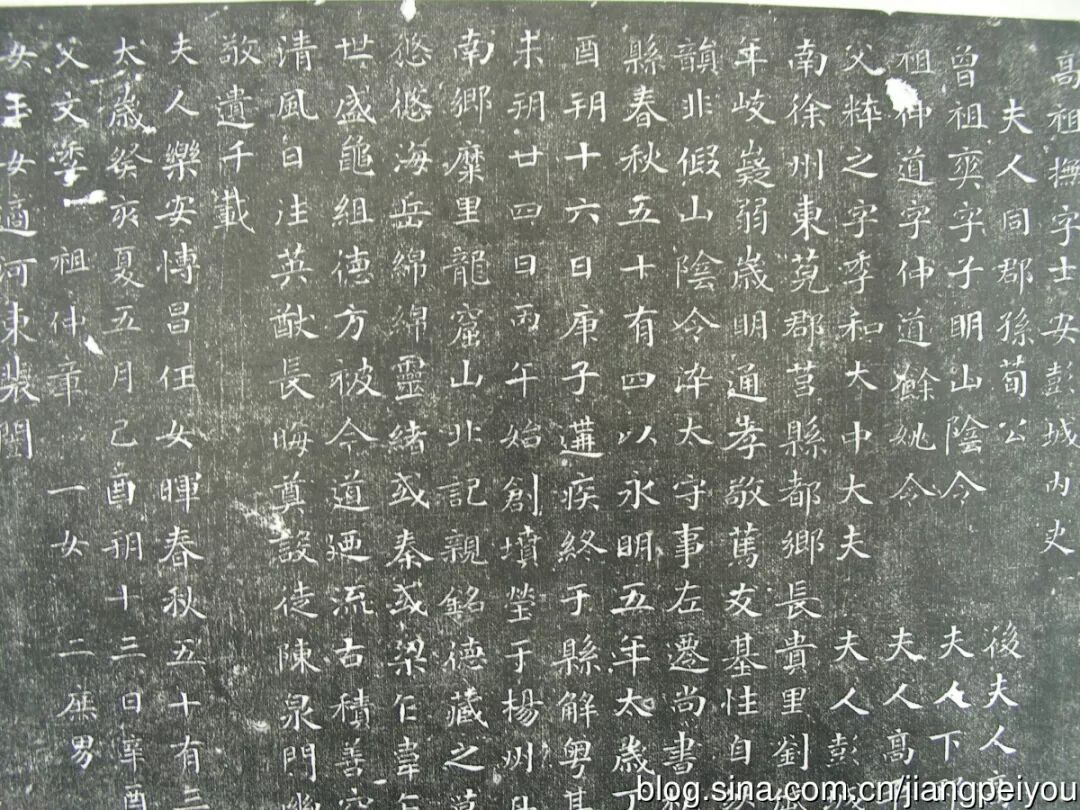 高祖撫字士安彭城內史
夫人同郡孫荀公 後夫人
曾祖爽字子明山陰令 夫人下
祖仲道字仲道餘姚令 夫人高
父粹之字季和大中大夫 夫人彭
南徐州東莞郡莒縣都鄉長貴里劉
年岐嶷弱歲明通孝敬篤友基性自
韻非假山陰令淬大守事左遷尚書
縣春秋五十有四以永明五年太歲丁
酉朔十六日庚子遘疾終于縣解粵其
未朔廿四日丙午始創墳塋于楊州丹
南鄉糜里龍窟山北記親銘德藏之墓
悠悠海岳綿綿靈緒或秦或梁乍韋乍
世盛龜組德方被今道迺流古積善空
清風日往英猷長晦奠設徒陳泉門幽
敬遺千載
夫人樂安博昌任女暉春秋五十有三
太歲癸亥夏五月己酉朔十三日辛酉
父文季 祖仲章 一女 二庶男
女玉女適河東裴闓
blog.sina.com.cn/jiangpeiyou